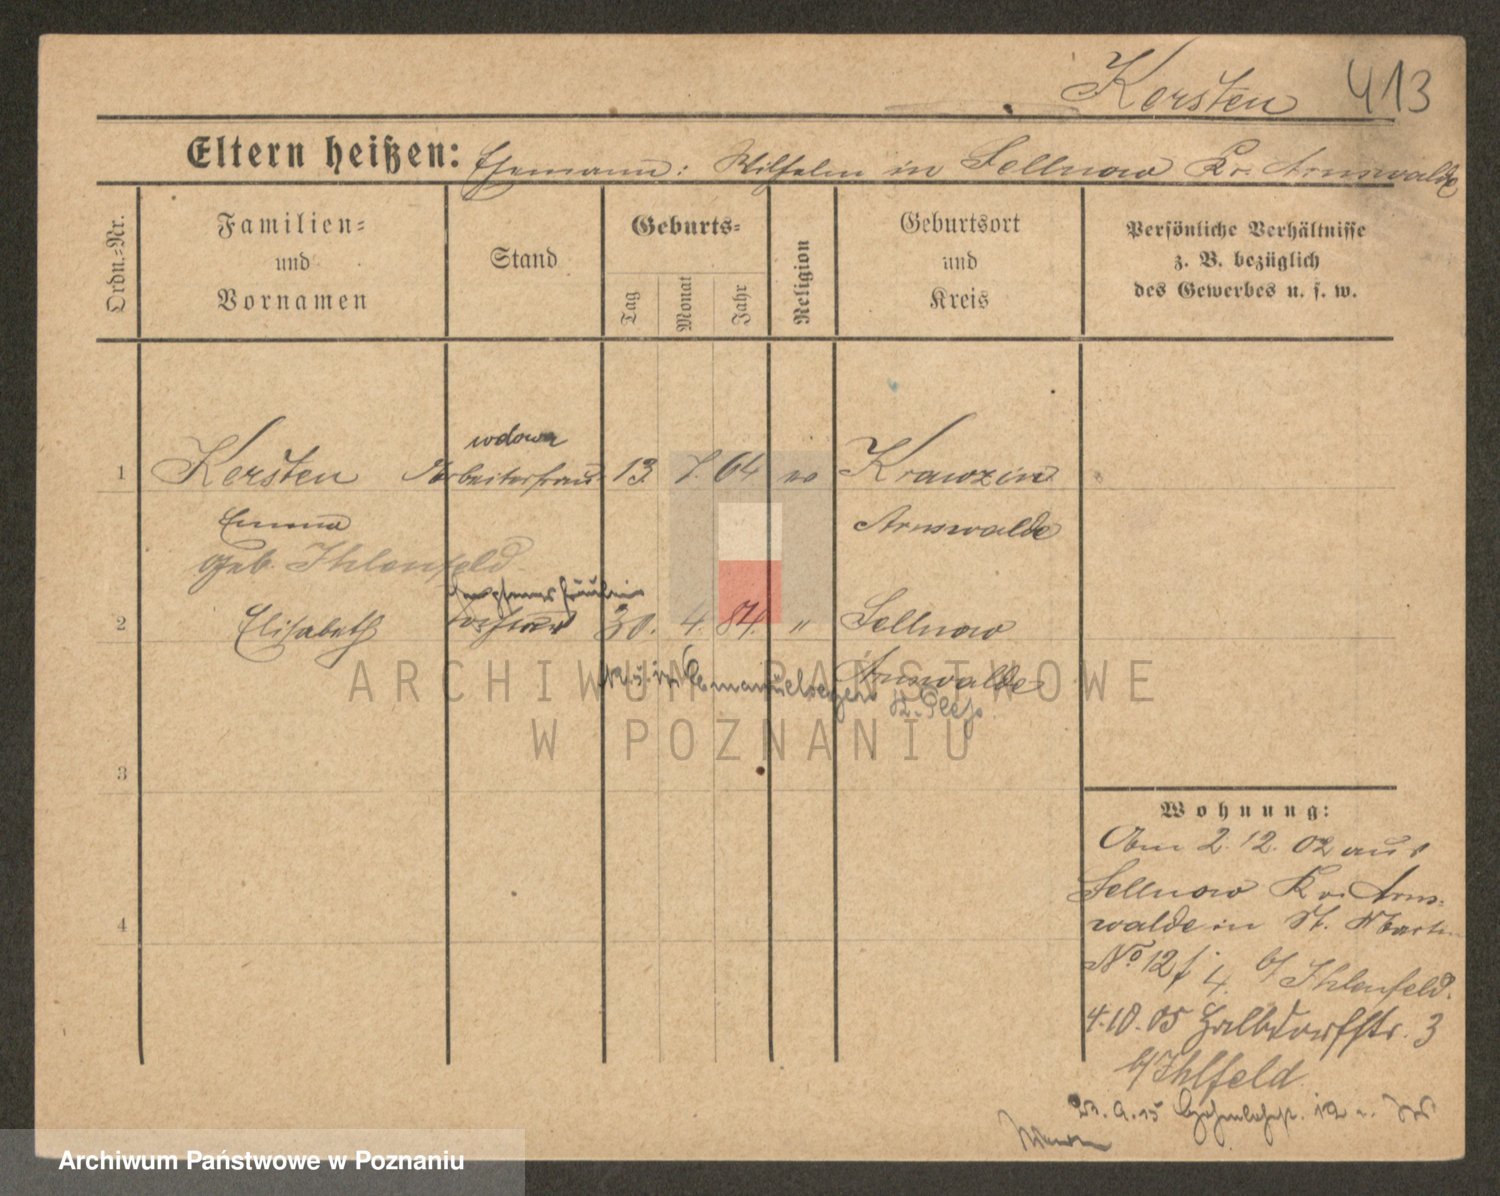 Kersten 413
Eltern heißen: Ehemann: Wilhelm in Sellnow Kr. Arnswalde
Ordn.-Nr.
Familien-
und
Vornamen
Stand
Geburts-
Tag
Monat
Jahr
Religion
Geburtsort
und
Kreis
Persönliche Verhältnisse
z. B. bezüglich
des Gewerbes u. s. w.
wdowa
1 Kersten Arbeiterfrau 13. 7. 64 ev Kranzin
Emma Arnswalde
geb. Ihlenfeld
2 Elisabeth Tochter 30. 4. 84. " Sellnow
Arnswalde
Kr. Pless
3
4
Wohnung:
Am 2. 12. 02 aus
Sellnow Kr. Arns-
walde in St. Martin
No 12 4. b/ Ihlenfeld.
4.10.05 Halbdorfstr. 3
b/ Ihlfeld
23. 9. 15 12
ARCHIWUM PAŃSTWOWE
W POZNANIU
Archiwum Państwowe w Poznaniu